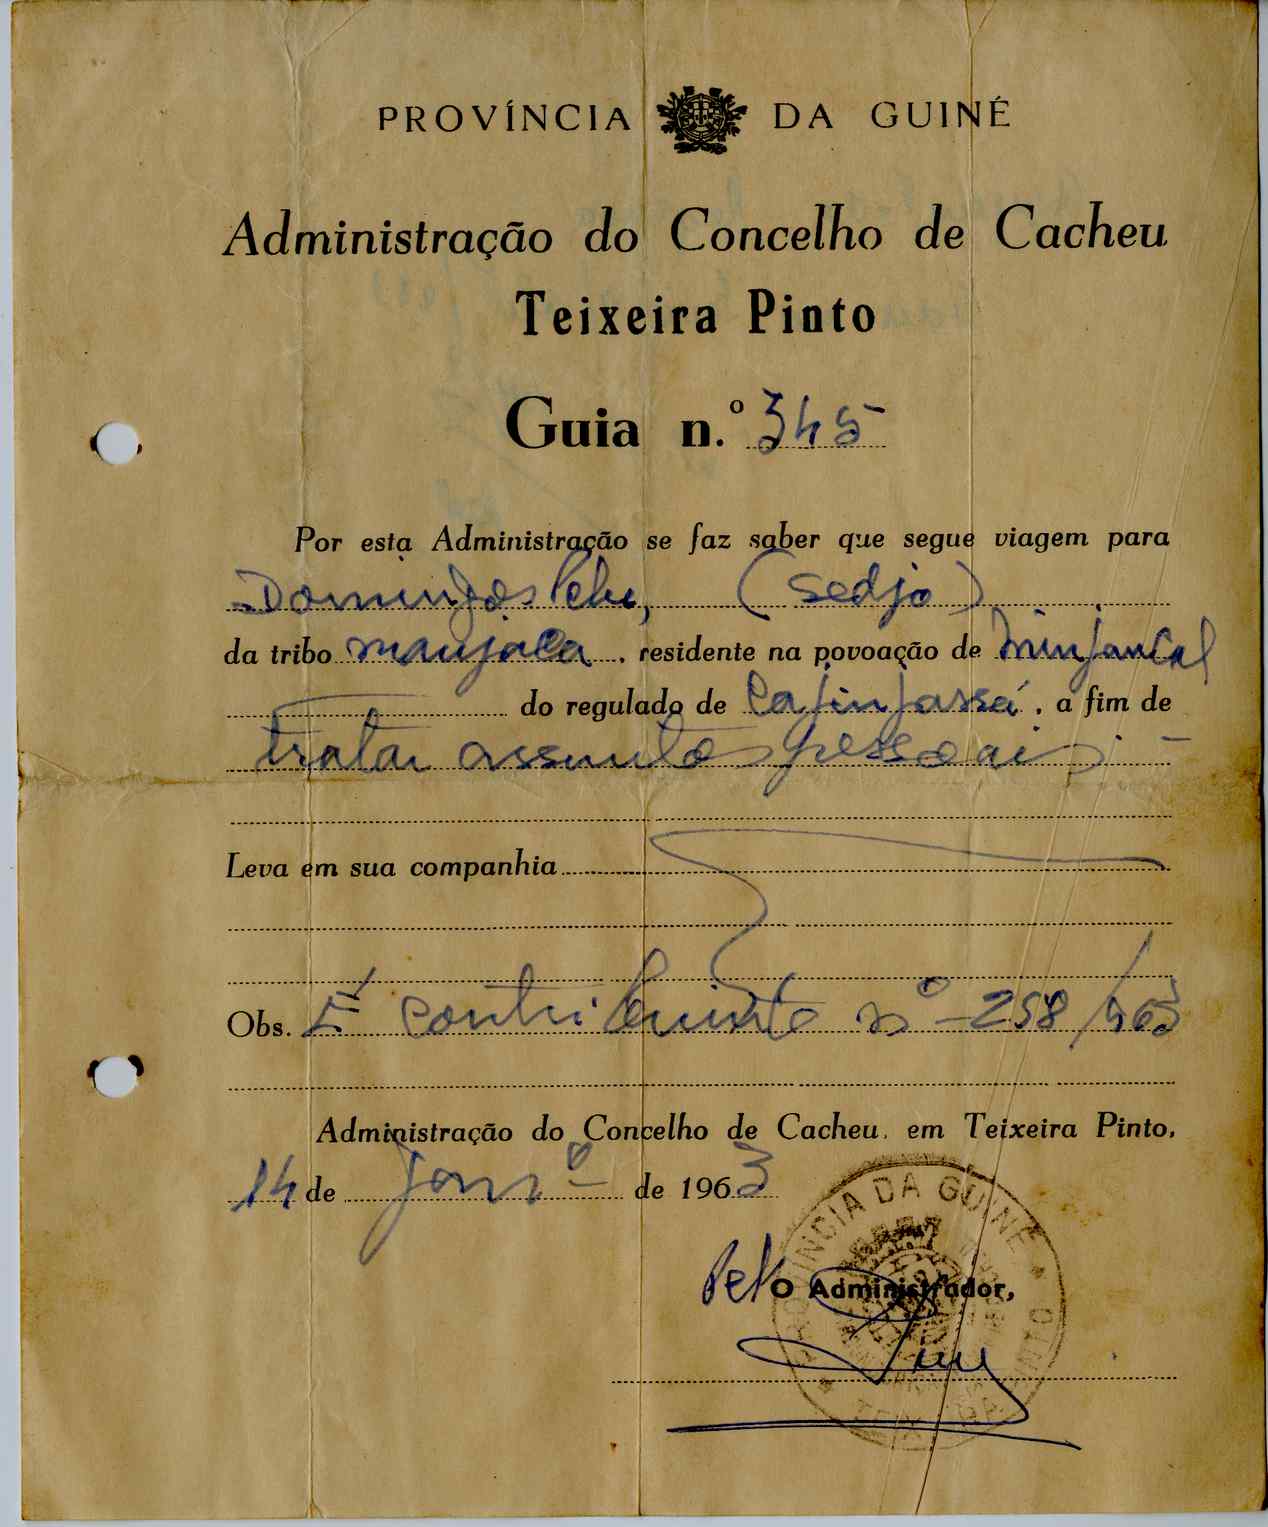 PROVÍNCIA DA GUINÉ
Administração do Concelho de Cacheu
Teixeira Pinto
Guia n.º 345
Por esta Administração se faz saber que segue viagem para
Domingos (Sedjo)
da tribo manjaca, residente na povoação de
do regulado de a fim de
tratar assuntos pessoais. —
Leva em sua companhia
Obs. É contribuinte nº 258/963
Administração do Concelho de Cacheu, em Teixeira Pinto,
14 de Janrº de 1963
PROVÍNCIA DA GUINÉ
Pel O Administrador,
TEIXEIRA PINTO